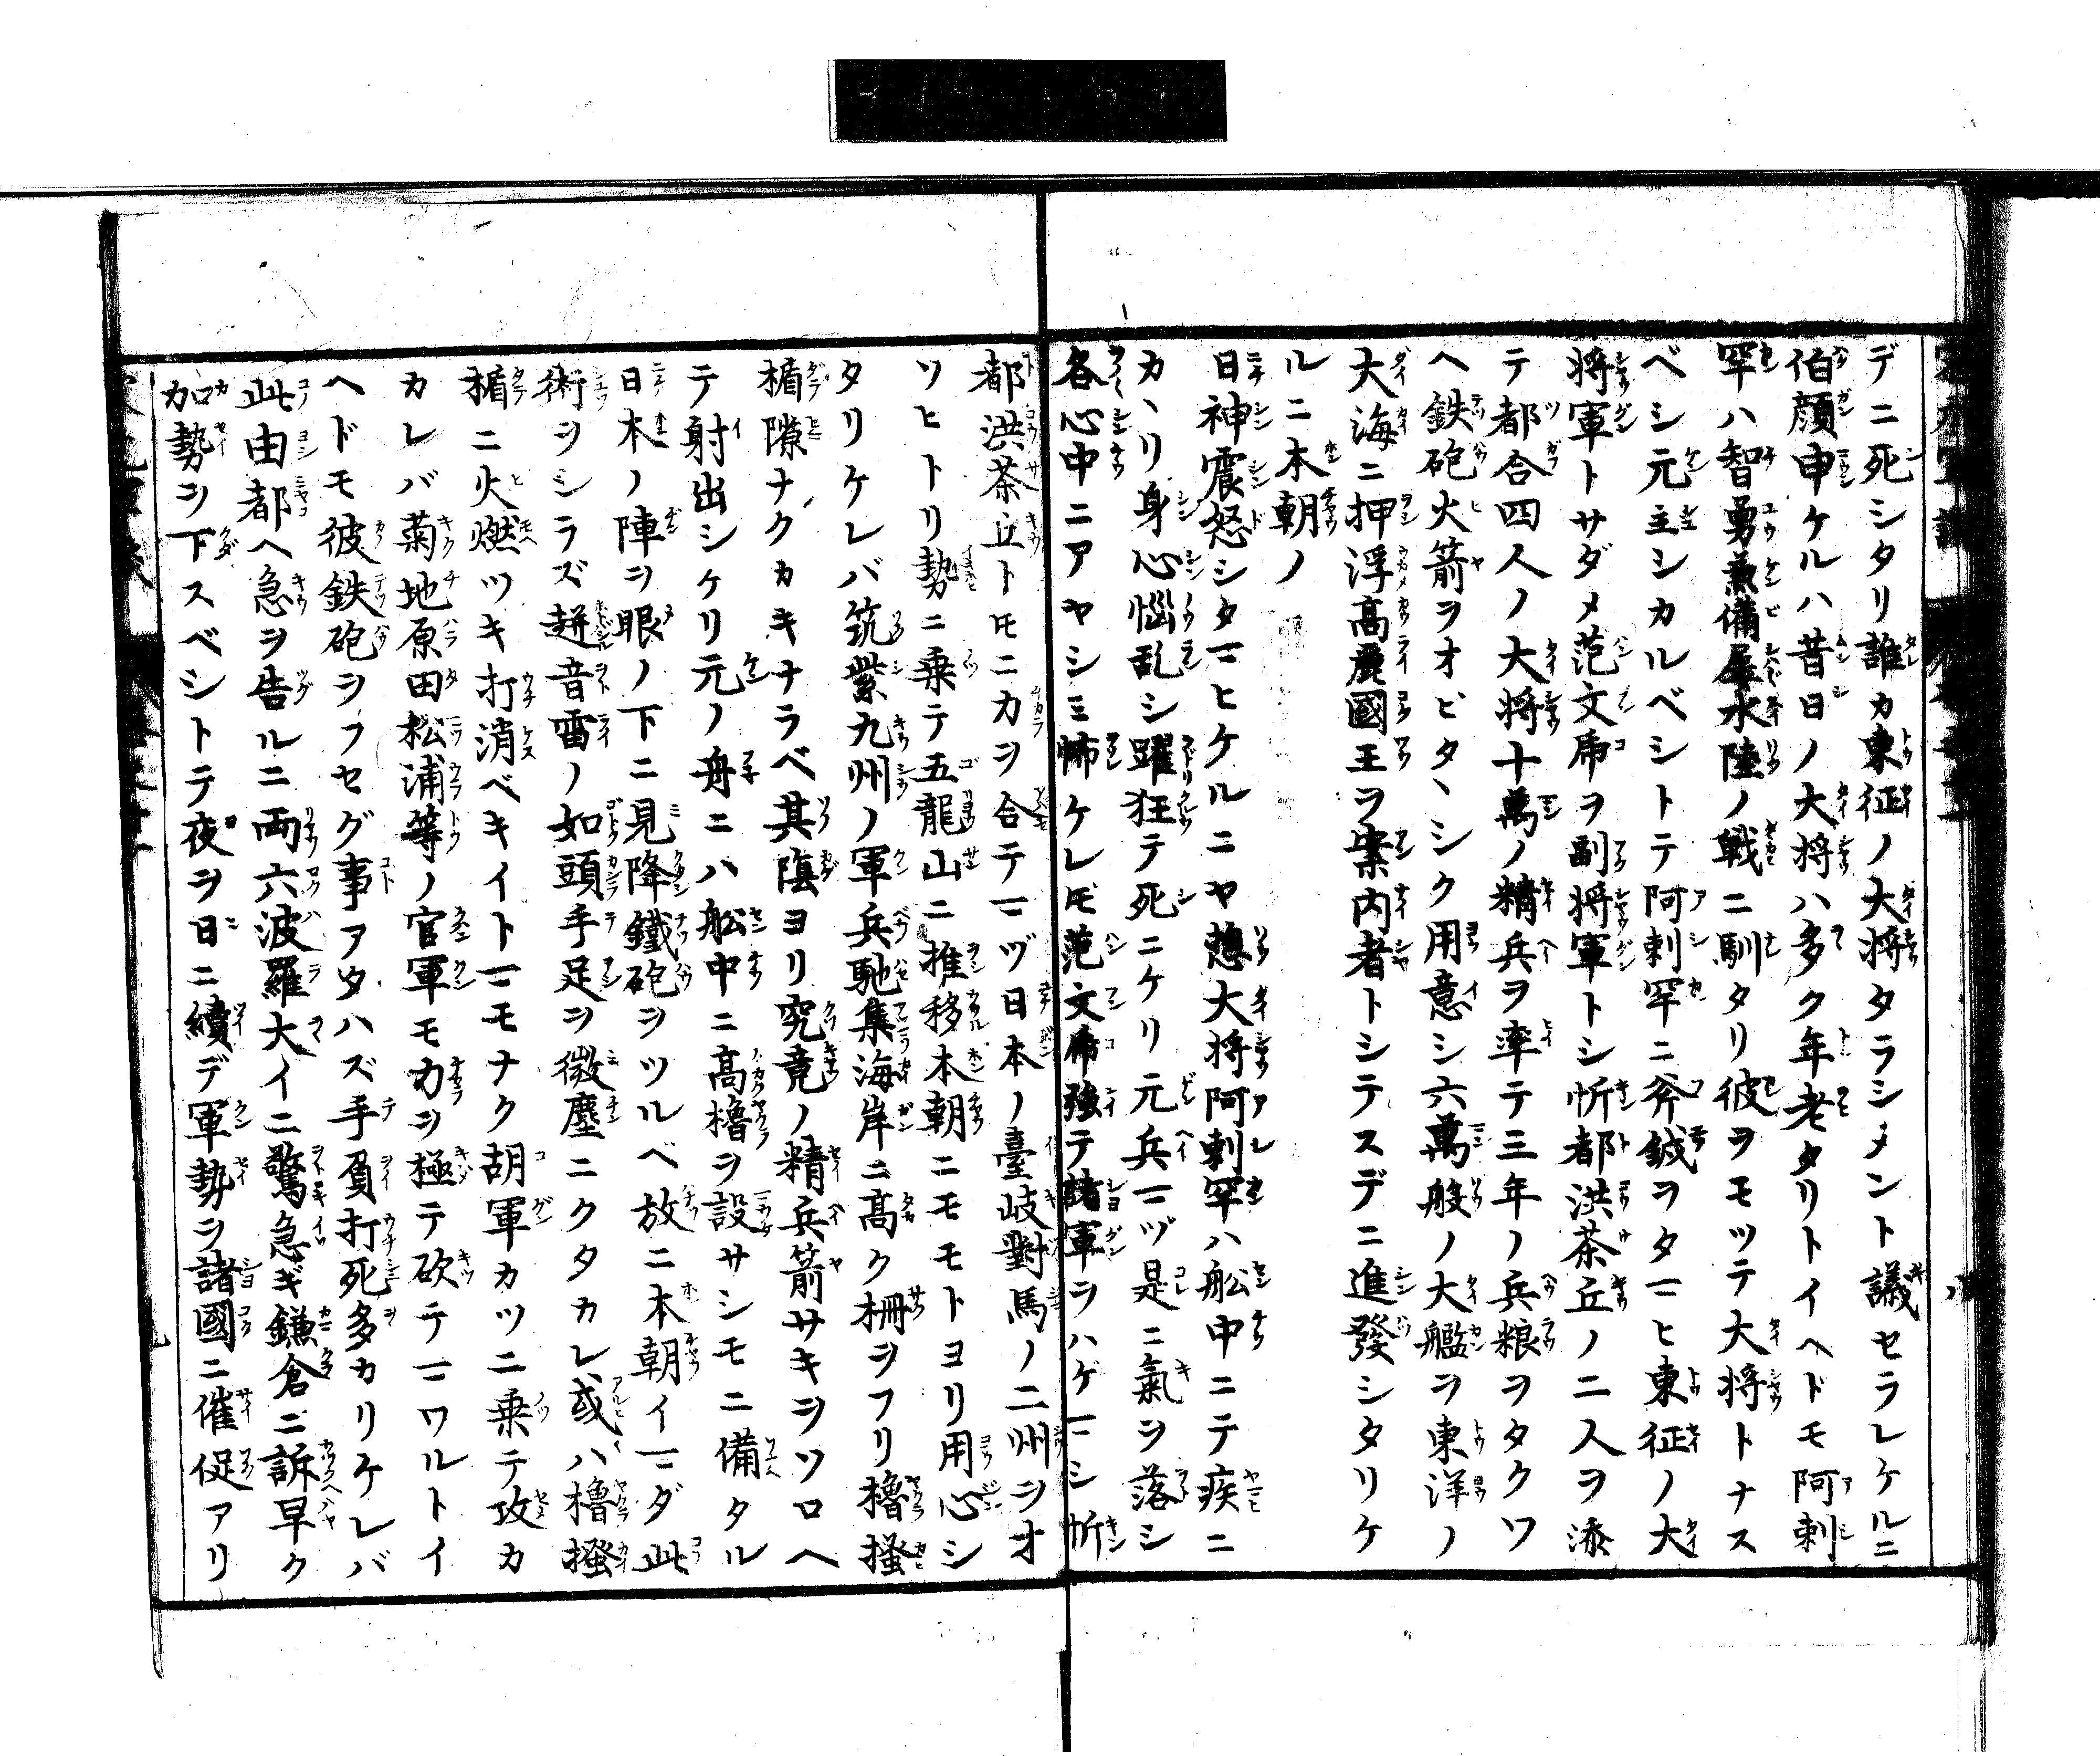 デニ死シタリ誰カ東征ノ大将タラシメント議セラレケルニ
伯顔申ケルハ昔日ノ大将ハ多ク年老タリトイヘドモ阿剌
罕ハ智勇兼備屡水陸ノ戦ニ馴タリ彼ヲモツテ大将トナス
ベシ元主シカルベシトテ阿剌罕ニ斧鉞ヲタマヒ東征ノ大
将軍トサダメ范文虎ヲ副将軍トシ忻都洪茶丘ノ二人ヲ添
テ都合四人ノ大将十萬ノ精兵ヲ率テ三年ノ兵粮ヲタクワ
ヘ鉄砲火箭ヲオビタヽシク用意シ六萬艘ノ大艦ヲ東洋ノ
大海ニ押浮高麗國王ヲ案内者トシテスデニ進發シタリケ
ルニ本朝ノ
日神震怒シタマヒケルニヤ惣大将阿剌罕ハ舩中ニテ疾ニ
カヽリ身心惱乱シ躍狂テ死ニケリ元兵マヅ是ニ氣ヲ落シ
各心中ニアヤシミ怖ケレ𪜈范文虎強テ諸軍ヲハゲマシ忻
都洪茶丘トモニカヲ合テマヅ日本ノ臺岐對馬ノ二州ヲオ
ツヒトリ勢ニ乗テ五龍山ニ推移本朝ニモモトヨリ用心シ
タリケレバ筑紫九州ノ軍兵馳集海岸ニ高ク柵ヲフリ櫓搔
楯隙ナクカキナラベ其䕃ヨリ究竟ノ精兵箭サキヲソロヘ
テ射出シケリ元ノ舟ニハ舩中ニ高櫓ヲ設サシモニ備タル
日本ノ陣ヲ眼ノ下ニ見降鐵砲ヲツルベ放ニ本朝イマダ此
術ヲシラズ趂音雷ノ如頭手足ヲ微塵ニクタカレ或ハ櫓搔
楯ニ火燃ツキ打消ベキイトマモナク胡軍カツニ乗テ攻カ
カレバ菊地原田松浦等ノ官軍モ力ヲ極テ砍テマワルトイ
ヘドモ彼鉄砲ヲフセグ事アタハズ手負打死多カリケレバ
此由都ヘ急ヲ告ルニ両六波羅大イニ驚急ギ鎌倉ニ訴早ク
加勢ヲ下スベシトテ夜ヲ日ニ續デ軍勢ヲ諸國ニ催促アリ